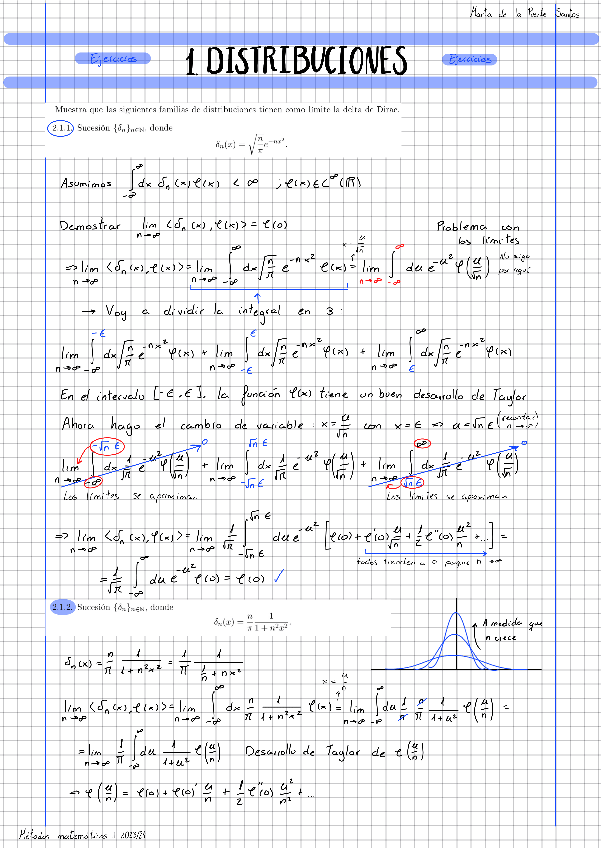 Marta de la Puente Santos
Ejercicios
1 DISTRIBUCIONES
Ejercicios
Muestra que las siguientes familias de distribuciones tienen como límite la delta de Dirac.
2.1.1. Sucesión {δₙ}ₙ∈ℕ, donde
δₙ(x) = √(n/π) e^(−nx²).
Asumimos ∫_{-∞}^{∞} dx δₙ(x) φ(x) < ∞ , φ(x) ∈ C^∞(ℝ)
Demostrar lim_{n→∞} <δₙ(x), φ(x)> = φ(0)
Problema con los límites
⇒ lim_{n→∞} <δₙ(x), φ(x)> = lim_{n→∞} ∫_{-∞}^{∞} dx √(n/π) e^(−nx²) φ(x) = lim_{n→∞} ∫_{-∞}^{∞} du e^(−u²) φ(u/√n)
x = u/√n
No sigo por aquí
→ Voy a dividir la integral en 3:
lim_{n→∞} ∫_{-∞}^{-ε} dx √(n/π) e^(−nx²) φ(x) + lim_{n→∞} ∫_{-ε}^{ε} dx √(n/π) e^(−nx²) φ(x) + lim_{n→∞} ∫_{ε}^{∞} dx √(n/π) e^(−nx²) φ(x)
En el intervalo [-ε, ε], la función φ(x) tiene un buen desarrollo de Taylor
Ahora hago el cambio de variable: x = u/√n con x = ε ⇒ u = √n ε (recordar: n→∞)
lim_{n→∞} ∫_{-∞}^{-√n ε} dx 1/√π e^(−u²) φ(u/√n) → 0 + lim_{n→∞} ∫_{-√n ε}^{√n ε} dx 1/√π e^(−u²) φ(u/√n) + lim_{n→∞} ∫_{√n ε}^{∞} dx 1/√π e^(−u²) φ(u/√n) → 0
Los límites se aproximan
Los límites se aproximan
⇒ lim_{n→∞} <δₙ(x), φ(x)> = lim_{n→∞} 1/√π ∫_{-√n ε}^{√n ε} du e^(−u²) [φ(0) + φ'(0) u/√n + 1/2 φ''(0) u²/n + ...] =
todos tienden a 0 porque n→∞
= 1/√π ∫_{-∞}^{∞} du e^(−u²) φ(0) = φ(0) ✓
2.1.2. Sucesión {δₙ}ₙ∈ℕ, donde
δₙ(x) = n/π 1/(1 + n²x²).
A medida que n crece
δₙ(x) = n/π 1/(1 + n²x²) = 1/π 1/(1/n + nx²)
x = u/n
lim_{n→∞} <δₙ(x), φ(x)> = lim_{n→∞} ∫_{-∞}^{∞} dx n/π 1/(1 + n²x²) φ(x) = lim_{n→∞} ∫_{-∞}^{∞} du 1/n n/π 1/(1 + u²) φ(u/n) =
= lim_{n→∞} 1/π ∫_{-∞}^{∞} du 1/(1 + u²) φ(u/n) Desarrollo de Taylor de φ(u/n)
⇒ φ(u/n) = φ(0) + φ(0)' u/n + 1/2 φ''(0) u²/n² + ...
Métodos matemáticos I 2023/24